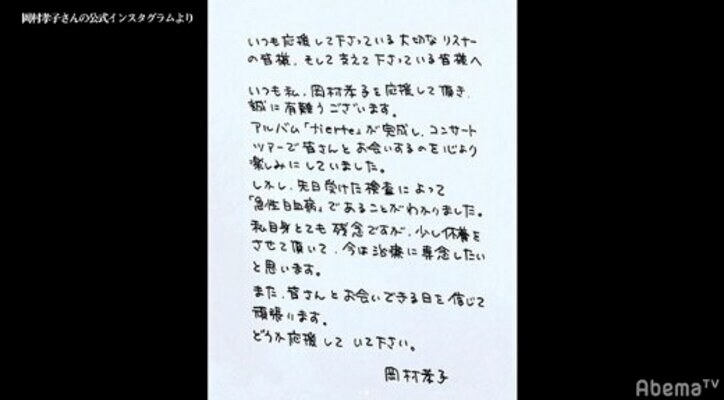 岡村孝子さんの公式インスタグラムより
いつも応援して下さっている大切なリスナー
の皆様、そして支えて下さっている皆様へ
いつも私、岡村孝子を応援して頂き、
誠に有難うございます。
アルバム「fierte」が完成し、コンサート
ツアーで皆さんとお会いするのを心より
楽しみにしていました。
しかし、先日受けた検査によって
「急性白血病」であることがわかりました。
私自身とても残念ですが、少し休養を
させて頂いて、今は治療に専念したい
と思います。
また、皆さんとお会いできる日を信じて
頑張ります。
どうか応援していて下さい。
岡村孝子
AbemaTV